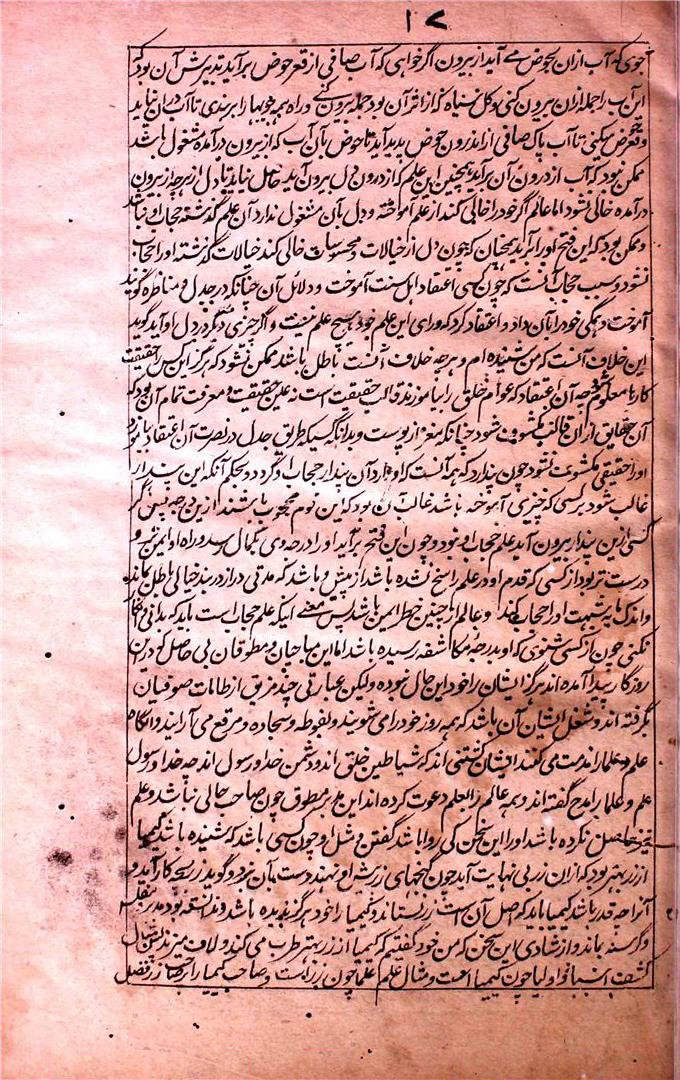 ۱۷
جوی که آب ازان بحوض می آید از بیرون اگر خواهی که آب صافی از قعر حوض برآید تدبیرش آن بود که
این آب را جمله ازان بیرون کنی و کل سیاه که از اثر آن بود جمله بیرون کنی و راه همه جویها را بربندی تا آب دران نیاید
و قعر حوض میکنی تا آب پاک صافی از اندرون حوض پدید آید تا حوض بآن آب که از بیرون درآمده مشغول باشد
ممکن نبود که آب از درون آن برآید همچنین این علم که از درون دل بیرون آید حاصل نیاید تا دل از هرچه از بیرون
درآمده خالی نشود اما عالم اگر خود را خالی کند از علم آموخته و دل بآن مشغول ندارد آن علم گذشته حجاب او نباشد
و ممکن بود که این فتح او را برآید همچنان که چون دل از خیالات و محسوسات خالی کند خیالات گذشته او را حجاب
نشود و سبب حجاب آنست که چون کسی اعتقاد اهل سنت آموخت و دلائل آن چنانکه در جدل و مناظره گویند
آموخت و همگی خود را بآن داد و اعتقاد کرد که ورای این علم خود هیچ علم نیست و اگر چیزی دیگر در دل او آید گوید
این خلاف آنست که من شنیده ام و هرچه خلاف آنست باطل باشد ممکن نشود که هرگز این کس را حقیقت
کارها معلوم شود چه آن اعتقاد که عوام خلق را بیاموزند قالب حقیقت است نه عین حقیقت و معرفت تمام آن بود که
آن حقایق ازان قالب مکشوف شود چنانکه مغز از پوست و بدانکه کسیکه طریق جدل در نصرت آن اعتقاد بیاموزد
او را حقیقتی مکشوف نشود چون پندارد که همه آنست که او دارد آن پندار حجاب او گردد و بحکم آنکه این پندار
غالب شود بر کسی که چیزی آموخته باشد غالب آن بود که این قوم محجوب باشند ازین درجه پس اگر
کسی ازین پندار بیرون آید علم حجاب او نبود و چون این فتح برآید او را درجه وی بکمال رسد و راه او ایمن تر و
درست تر بود از کسی که قدم او در علم راسخ نشده باشد از پیش و باشد که مدتی دراز در بند خیالی باطل بماند
و اندک مایه شبهت او را حجاب کند و عالم از چنین خطر ایمن باشد پس معنی اینکه علم حجاب است باید که بدانی و انکار
نکنی چون از کسی شنوی که او بدرجه مکاشفه رسیده باشد اما این مباحیان و مطوقان بی حاصل که درین
روزگار پیدا آمده اند هرگز ایشان را خود این حال نبوده ولیکن عبارتی چند مزیق از طامات صوفیان
بگرفته اند و شغل ایشان آن باشد که همه روز خود را می شویند و بفوطه و سجاده و مرقع می آرایند و آنگاه
علم و علما را مذمت می کنند ایشان کشتنی اند که شیاطین خلق اند و دشمن خدا و رسول اند چه خدا و رسول
علم و علما را مدح گفته اند و همه عالم را بعلم دعوت کرده اند این مدبر مطوق چون صاحب حالی نباشد و علم
نیز حاصل نکرده باشد او را این سخن کی روا باشد گفتن و مثل او چون کسی باشد که شنیده باشد که کیمیا
از زر بهتر بود که ازان زر بی نهایت آید چون گنجهای زر پیش او نهند دست بآن نبرد و گوید زر بچه کار آید و
آنرا چه قدر باشد کیمیا باید که اصل آن است زر نستاند و کیمیا را خود هرگز ندیده باشد و ندانسته بود مدبر و مفلس
و گرسنه بماند و از شادی این سخن که من خود گفتم که کیمیا از زر بهتر طرب می کند و لاف میزند پس مثال
کشف انبیا و اولیا چون کیمیا است و مثال علم علما چون زر است و صاحب کیمیا را بر صاحب زر فضل